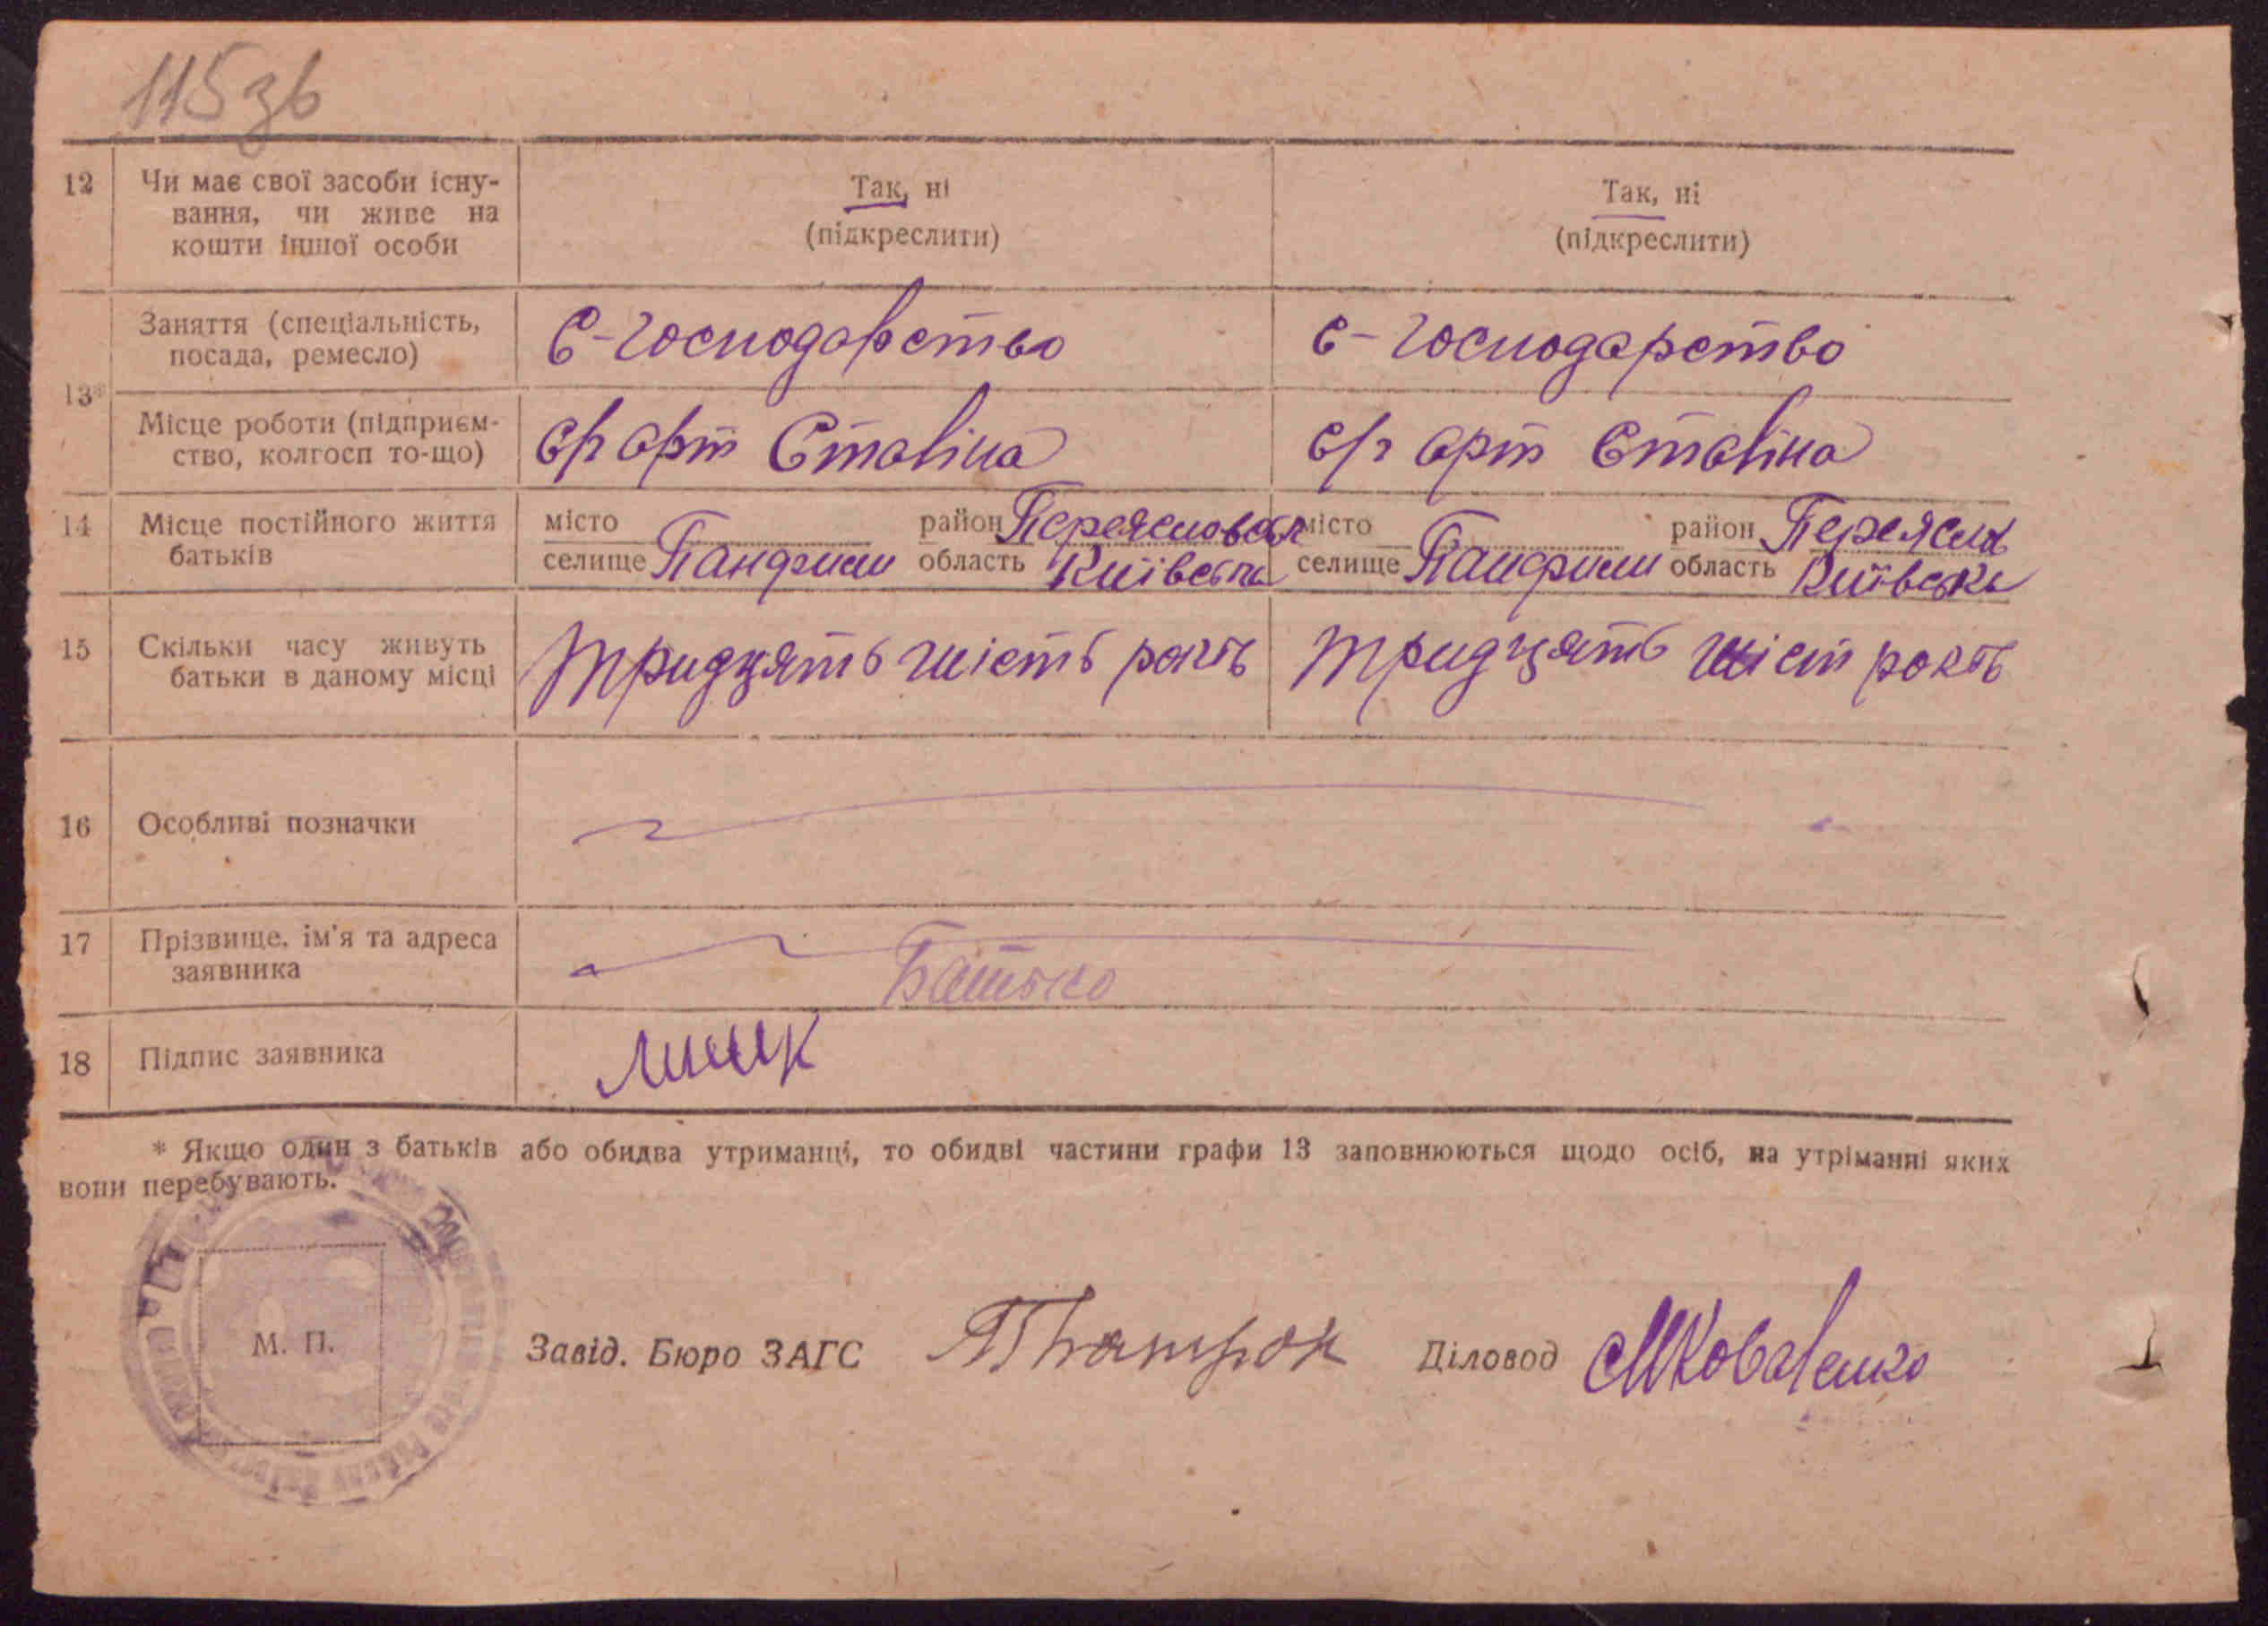 115 зв
12 Чи має свої засоби існу-
вання, чи живе на
кошти іншої особи
Так, ні
(підкреслити)
Так, ні
(підкреслити)
13*
Заняття (спеціальність,
посада, ремесло)
с-господарство
с-господарство
Місце роботи (підприєм-
ство, колгосп то-що)
с/г арт Сталіна
с/г арт Сталіна
14 Місце постійного життя
батьків
місто район
селище область Київськ
місто район Переясл
селище область Київськ
15 Скільки часу живуть
батьки в даному місці
тридцять шість років
тридцять шіст років
16 Особливі позначки
17 Прізвище, ім'я та адреса
заявника
Батько
18 Підпис заявника
* Якщо один з батьків або обидва утриманці, то обидві частини графи 13 заповнюються щодо осіб, на утріманні яких
вони перебувають.
М. П.
Завід. Бюро ЗАГС
Діловод МКоваленко